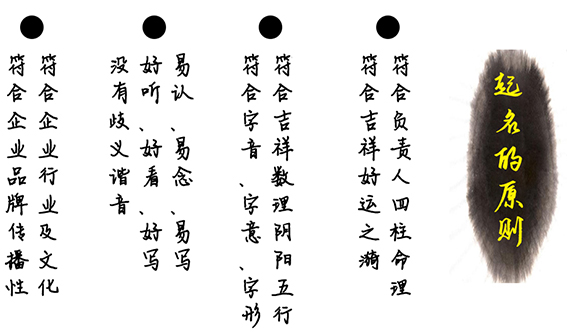 起名的原则
符合负责人四柱命理
符合吉祥好运之漪
符合吉祥数理阴阳五行
符合字音、字意、字形
易认、易念、易写
好听、好看、好写
没有歧义谐音
符合企业行业及文化
符合企业品牌传播性